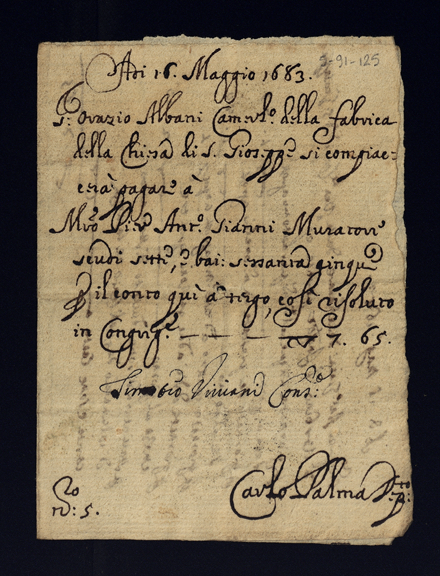 Adi 16. Maggio 1683.
9-91-125
S.r Orazio Albani Camerl.o della fabrica
della Chiesa di S. Gioseppe si compiac=
cerà pagare à
M.ro Pier Ant.o Gianni Muratore
scudi sette, e bai: sessanta cinque
p il conto quì à tergo, così risoluto
in Congreg.e — — — 7. 65.
Viviani
Carlo Palma
no: 5.